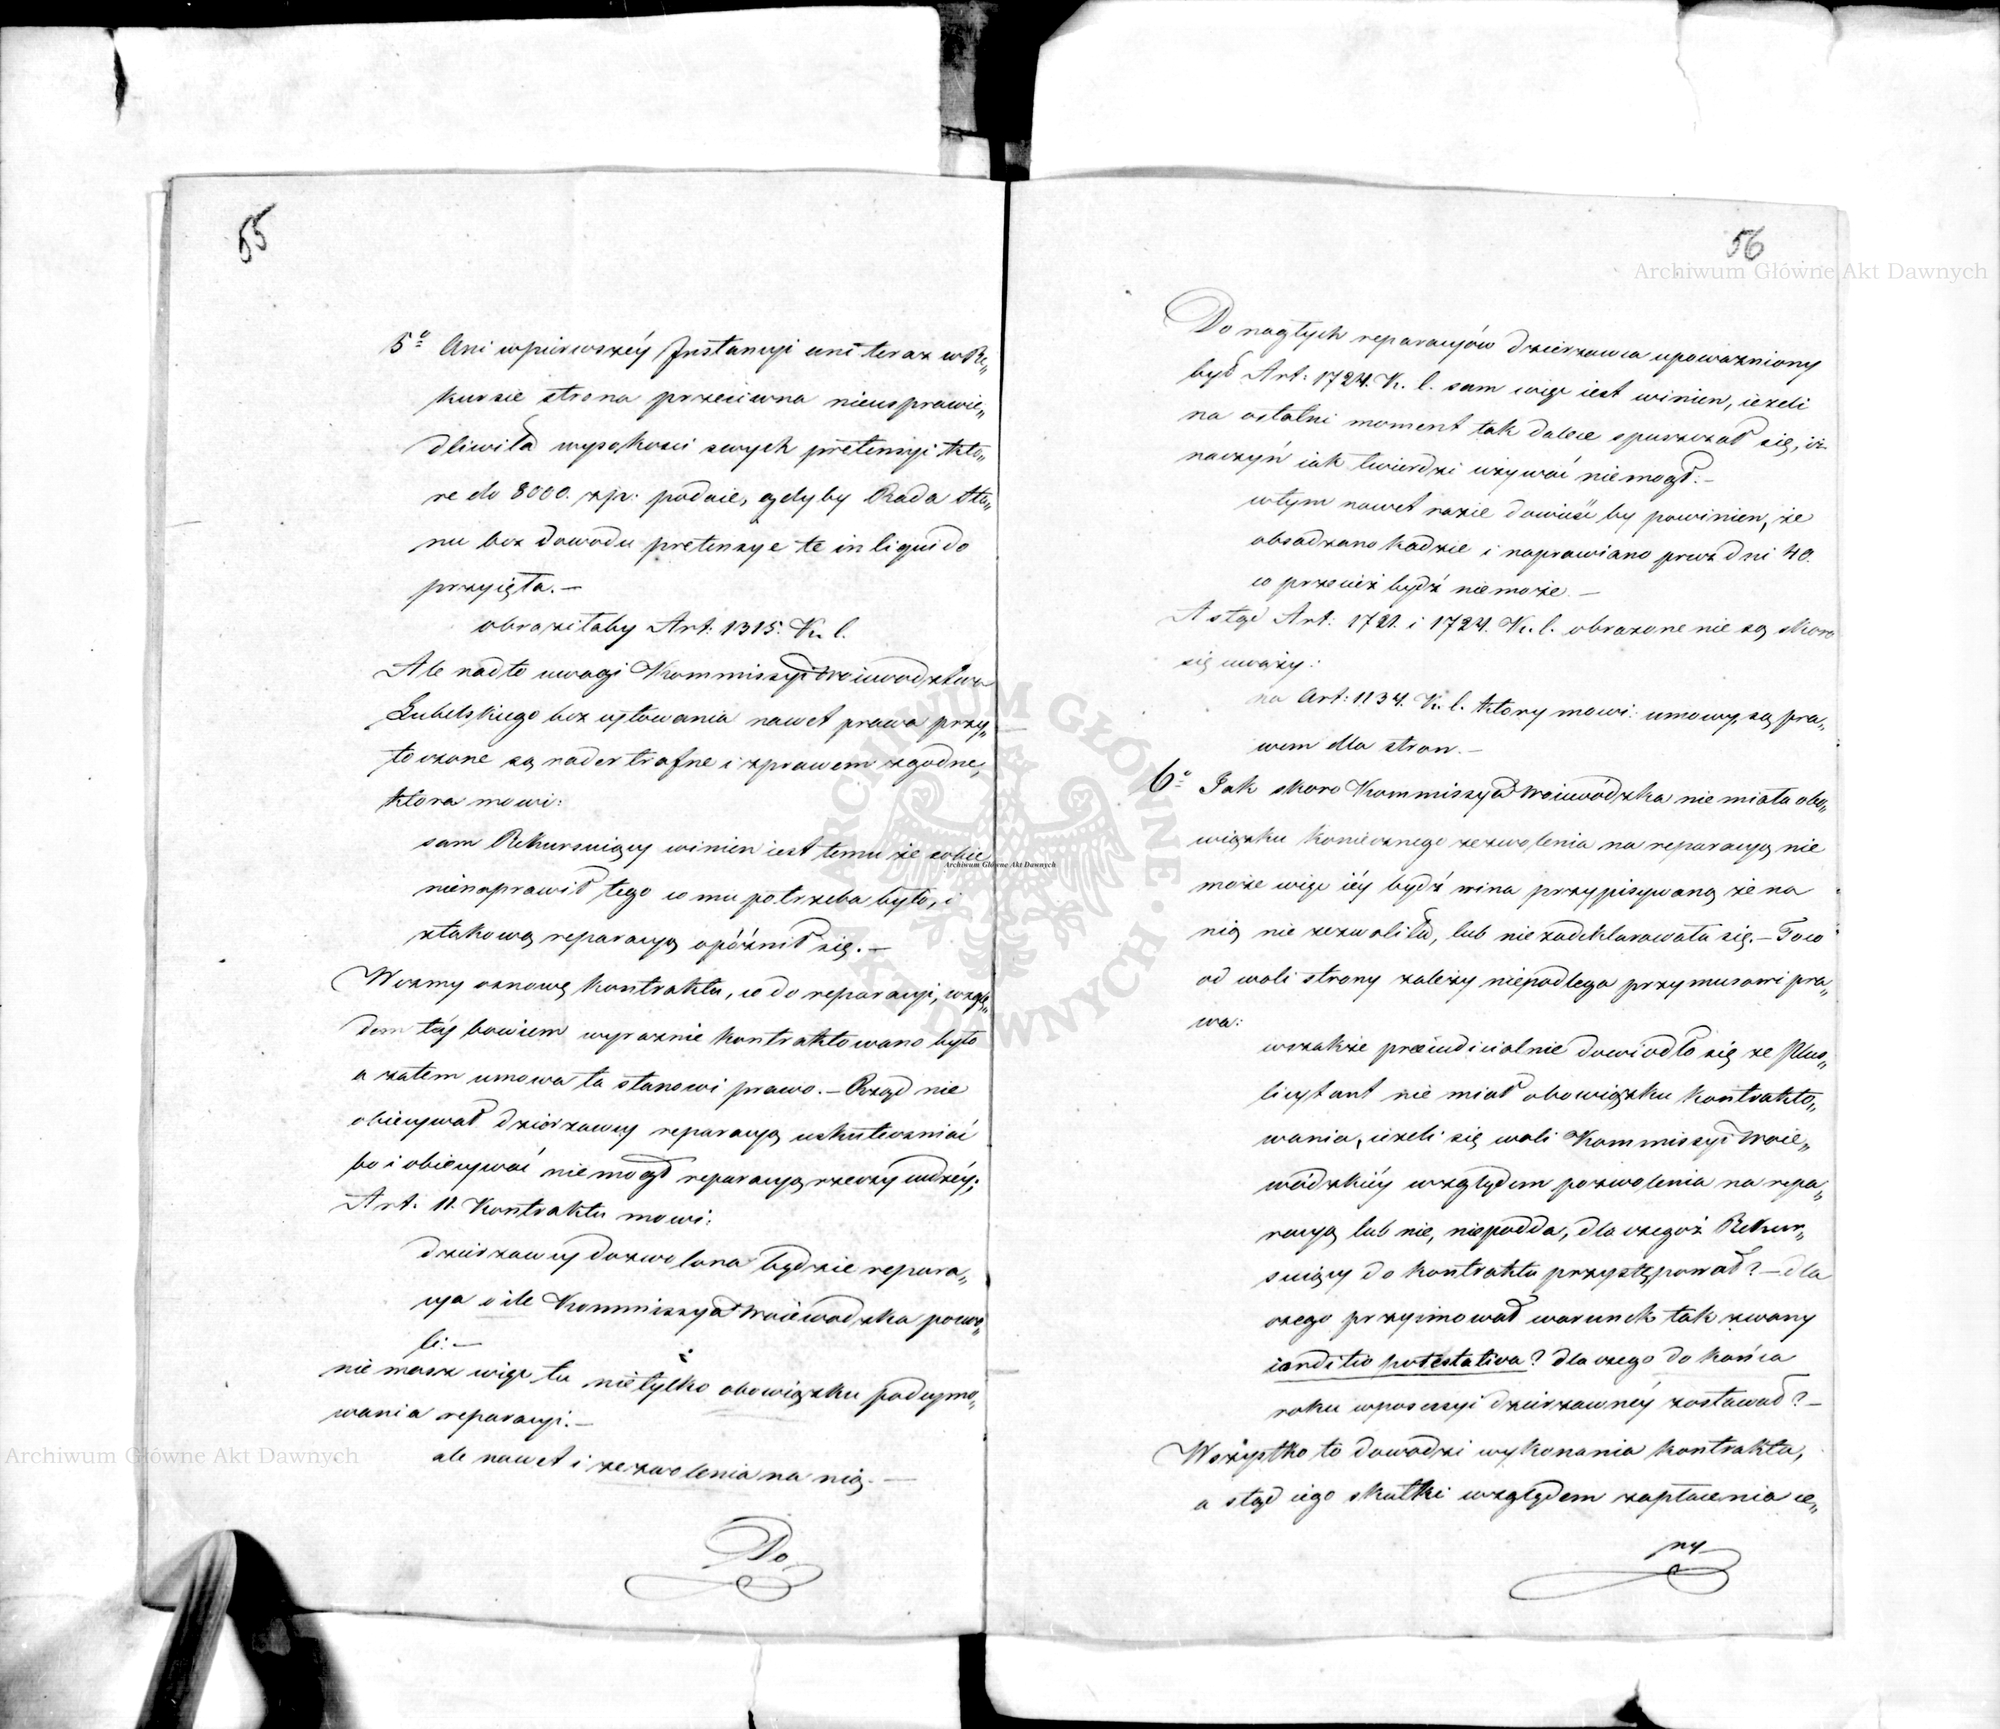 55
5o Ani wpierwszéy Instancyi ani teraz w Re„
kursie strona przeciwna nieusprawie„
dliwiła wysokosci swych pretensyi kto„
re do 8000. złp: podaie, gdyby Rada Sta„
nu bez dowodu pretensye te in liquido
przyięła.—
obraziłaby Art: 1315. K. C.
Ale nadto uwagi Kommissyi Woiewodztwa
Lubelskiego bez cytowania nawet prawa przy„
toczone są nader trafne i z prawem zgodne,
ktora mowi:
sam Rekursuiący winien iest temu że sobie
nienaprawił tego co mu potrzeba było, i
z takową reparacyą opóźnił się.—
Wezmy osnowę kontraktu, co do reparacyi, wzglę„
dem téy bowiem wyraznie kontraktowano było
a zatem umowa ta stanowi prawo.— Rząd nie
obiecywał dzierzawcy reparacyą uskuteczniać
bo i obiecywać nie mogł reparacyą rzeczy cudzéy;
Art: 11. Kontraktu mowi:
dzierzawcy dozwolona będzie repara„
cya o ile Kommissya Woiewodzka pozwo„
li:—
nie masz więc tu nietylko obowiązku podeymo„
wania reparacyi.—
ale nawet i zezwolenia na nią.—
Do
56
Do nagłych reparacyów dzierzawca upowazniony
był Art: 1724. K. C. sam więc iest winien, ieżeli
na ostatni moment tak dalece spuszczał się, iż
naczyń iak twierdzi używać niemogł.—
w tym nawet razie dowieść by powinien, że
obsadzano kadzie i naprawiano przez dni 40.
co przecież bydź niemoże.—
A stąd Art: 1721. i 1724. K. C. obrazone nie są skoro
się uważy:
na Art: 1134. K. C. ktory mowi: umowy są pra„
wem dla stron.—
6o Jak skoro Kommissya Woiewódzka nie miała obo„
wiązku koniecznego zezwolenia na reparacyą nie
może więc iéy bydź wina przypisywaną że na
nią nie zezwoliła, lub nie zadeklarowała się.— To co
od woli strony zależy niepodlega przymusowi pra„
wa:
wszakże preiudicialnie dowiodło się że Plus„
licytant nie miał obowiązku kontrakto„
wania, ieżeli się woli Kommissyi Woie„
wódzkiéy względem pozwolenia na repa„
racyą lub nie, niepodda, dla czegoż Rekur„
suiący do kontraktu przystępował?— dla
czego przyimował warunek tak zwany
conditio potestativa? dla czego do końca
roku w possessyi dzierzawnéy zostawał?—
Wszystko to dowodzi wykonania kontraktu,
a stąd iego skutki względem zapłacenia ce„
ny
Archiwum Główne Akt Dawnych
Archiwum Główne Akt Dawnych
Archiwum Główne Akt Dawnych
ARCHIWUM GŁÓWNE AKT DAWNYCH